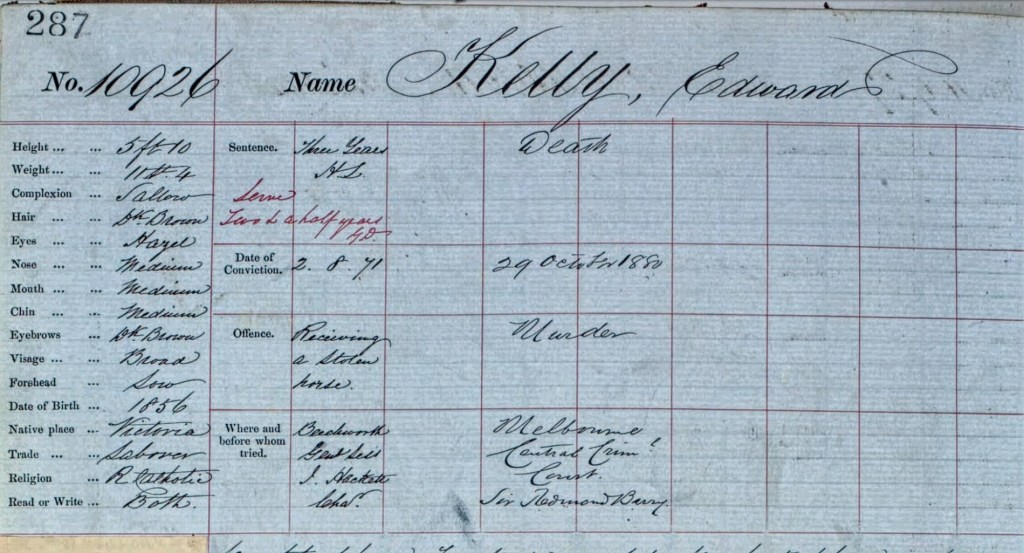 287
No. 10926 Name Kelly, Edward
Height ... ... 5 ft 10
Weight ... ... 11 st 4
Complexion ... Sallow
Hair ... ... Dk Brown
Eyes ... ... Hazel
Nose ... ... Medium
Mouth ... ... Medium
Chin ... ... Medium
Eyebrows ... Dk Brown
Visage ... ... Broad
Forehead ... Low
Date of Birth ... 1856
Native place ... Victoria
Trade ... ... Labourer
Religion ... R Catholic
Read or Write ... Both
Sentence. Three Years Death
H L.
Serve
Two & a half years
Date of
Conviction. 2. 8. 71 29 October 1880
Offence. Receiving Murder
a stolen
horse.
Where and
before whom
tried.
Beechworth
Genl Sess
J. Hackett
Cha^r.
Melbourne
Central Crim^l
Court.
Sir Redmond Barry